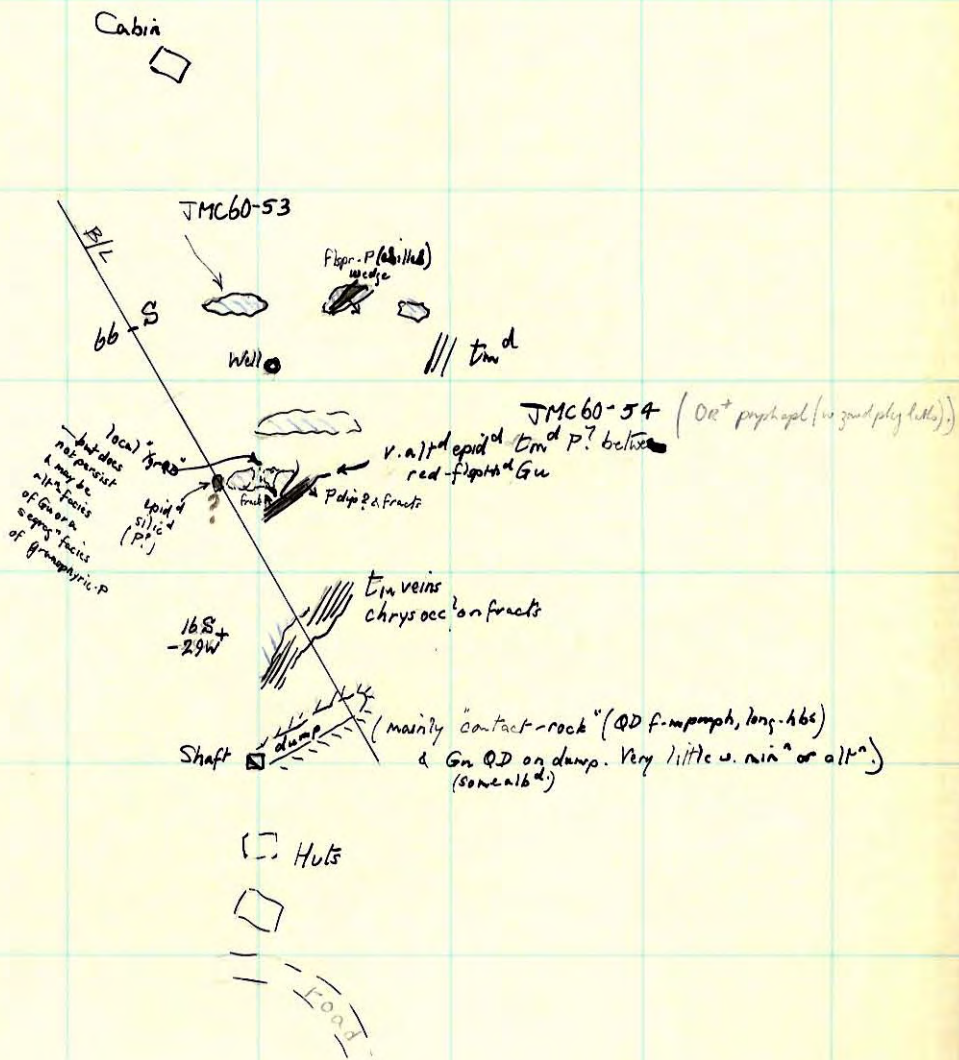 Cabin
JMC60-53
B/L
flspr-P (chilled)
wedge
66 S
Well
tmd
JMC60-54
v. altd epidd tmd P? between
red-flspthd Gu
local "grQD"
- but does
not persist
& may be
altn facies
of Gu or a
segregn facies
of granophyric-P
epidd
silicd
(P?)
?
fract
P dip? & fracts
tm veins
chrys occl on fracts
16S
-29W
dump
(mainly "contact-rock" (QD f-mpmph, long-hbs)
Shaft
& Gu QD on dump. Very little w. minn or altn.)
(some albd.)
Huts
road